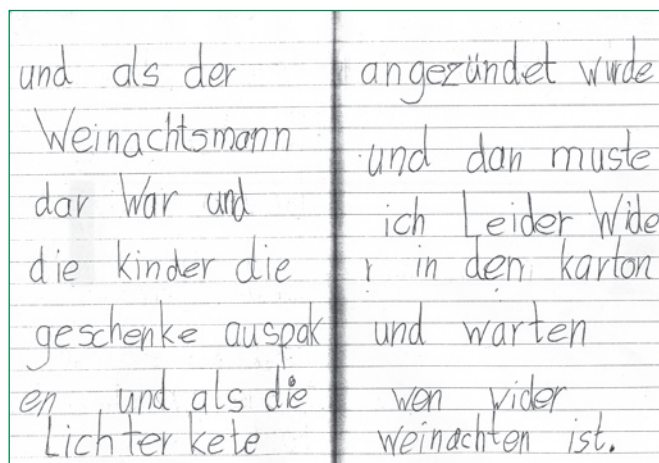 und als der
Weinachtsmann
dar War und
die kinder die
geschenke auspak
en und als die
Lichter kete
angezündet wurde
und dan muste
ich Leider Wide
r in den karton
und warten
wen wider
weinachten ist.